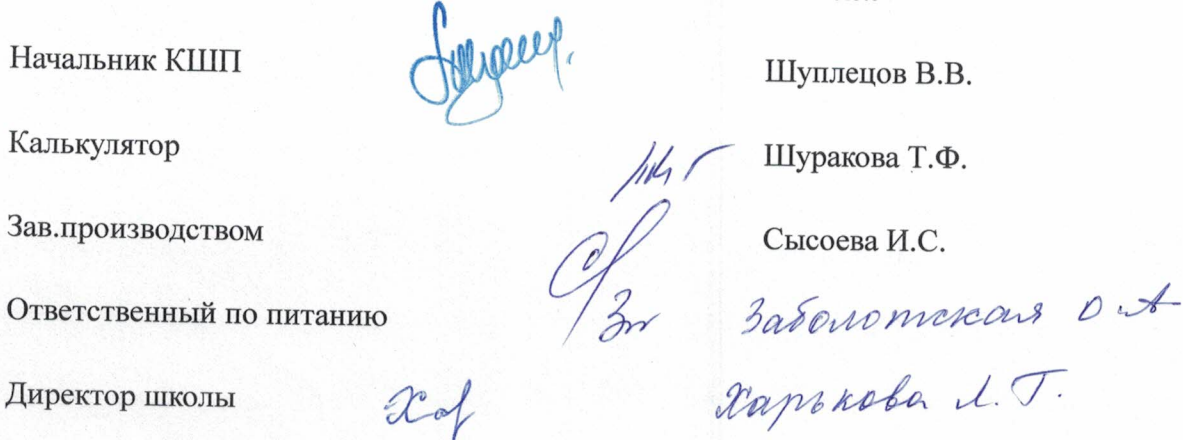 Начальник КШП Шуплецов В.В.
Калькулятор Шуракова Т.Ф.
Зав.производством Сысоева И.С.
Ответственный по питанию Заболотская О А
Директор школы Хар Харькова Л.Г.